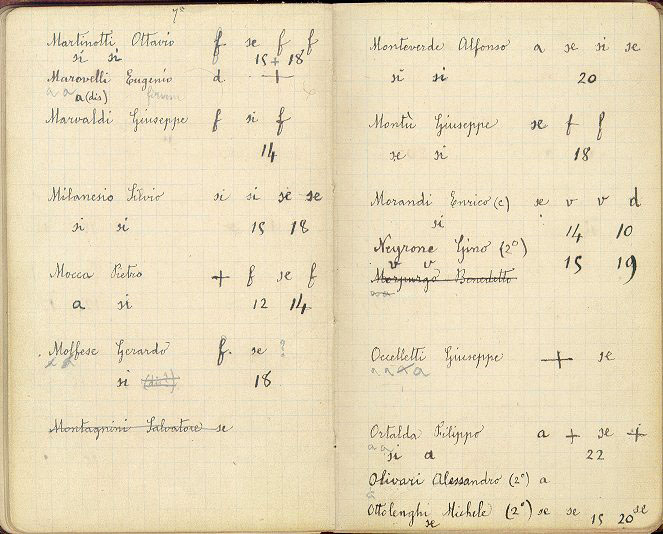 7ª
Martinotti Ottavio f se f f
si si 15 + 18
Marovelli Eugenio d. +
a a a (dis)
Marvaldi Giuseppe f si f
14
Milanesio Silvio si si se se
si si 15 18
Mocca Pietro + f se f
a si 12 14
Molfese Gerardo f. se ?
a a
si 18
Montagnini Salvatore se
Monteverde Alfonso a se si se
si si 20
Montù Giuseppe se f f
se si 18
Morandi Enrico (c) se v v d
si 14 10
Negrone Gino (2º) 15 19
v v
Morpurgo Benedetto
a a
Occelletti Giuseppe + se
a a a a
Ortalda Filippo a + se +
a a
si a 22
Olivari Alessandro (2º) a
a
Ottolenghi Michele (2º) se se 15 20 se
se